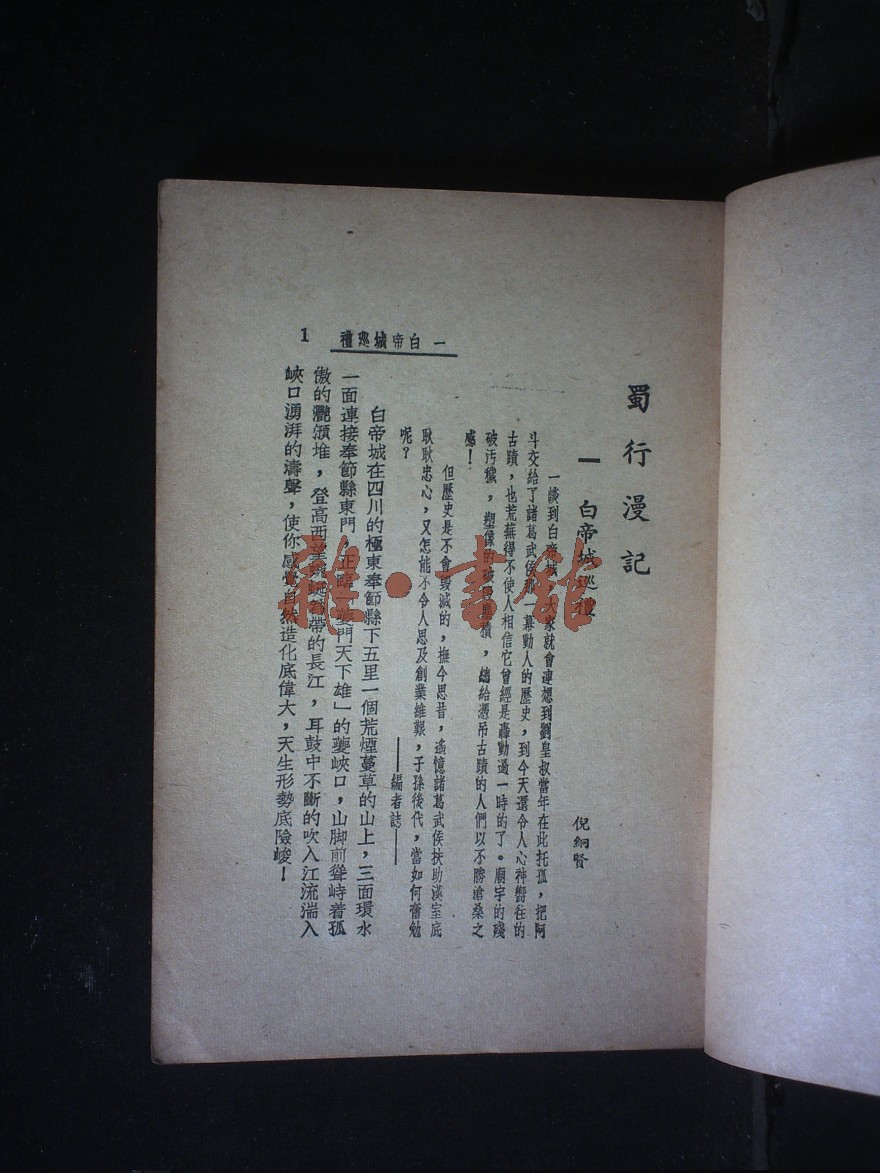 蜀行漫記
一 白帝城巡禮
倪綗賢
一談到白帝城，大家就會連想到劉皇叔當年在此托孤，把阿
斗交給了諸葛武侯那一幕動人的歷史，到今天還令人心神嚮往的
古蹟，也荒蕪得不使人相信它曾經是轟動過一時的了。廟宇的殘
破汚穢，塑像的破塵積，總給憑吊古蹟的人們以不勝滄桑之
感！
但歷史是不會毀滅的，撫今思昔，遙憶諸葛武侯扶助漢室底
耿耿忠心，又怎能不令人思及創業維艱，子孫後代，當如何奮勉
呢？
——編者誌——
白帝城在四川的極東奉節縣下五里一個荒煙蔓草的山上，三面環水
一面連接奉節縣東門，正臨「夔門天下雄」的夔峽口，山脚前聳峙着孤
傲的灩澦堆，登高西望蜿蜒若帶的長江，耳鼓中不斷的吹入江流湍入
峽口湧湃的濤聲，使你感覺自然造化底偉大，天生形勢底險峻！
一 白帝城巡禮
1
雅·書館